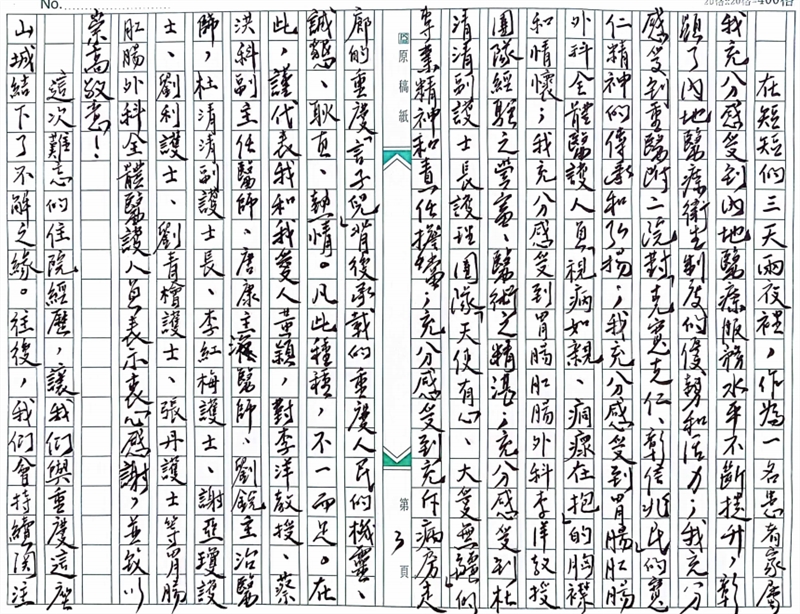 No.
20倍×20倍=400倍
在短短的三天兩夜裡，作為一名患者家屬
我充分感受到內地醫療服務水平不斷提升，彰
顯了內地醫療衛生制度的優勢和活力；我充分
感受到重醫附二院對「克寬克仁、彰信兆民」的寬
仁精神的傳承和弘揚；我充分感受到胃腸肛腸
外科全體醫護人員「視病如親、痌瘝在抱」的胸襟
和情懷；我充分感受到胃腸肛腸外科李洋教授
團隊經驗之豐富、醫術之精湛；充分感受到杜
清清副護士長護理團隊「天使有心、大愛無疆」的
專業精神和責任擔當；充分感受到充斥病房走
原稿紙
第3頁
廊的重慶「言子兒」背後承載的重慶人民的機靈、
誠懇、耿直、熱情。凡此種種，不一而足。在
此，謹代表我和我愛人黃穎，對李洋教授、蔡
洪科副主任醫師、唐康主治醫師、劉銳主治醫
師，杜清清副護士長、李紅梅護士、謝亞瓊護
士、劉利護士、劉青檜護士、張丹護士等胃腸
肛腸外科全體醫護人員表示衷心感謝，並致以
崇高敬意！
這次難忘的住院經歷，讓我們與重慶這座
山城結下了不解之緣。往後，我們會持續關注